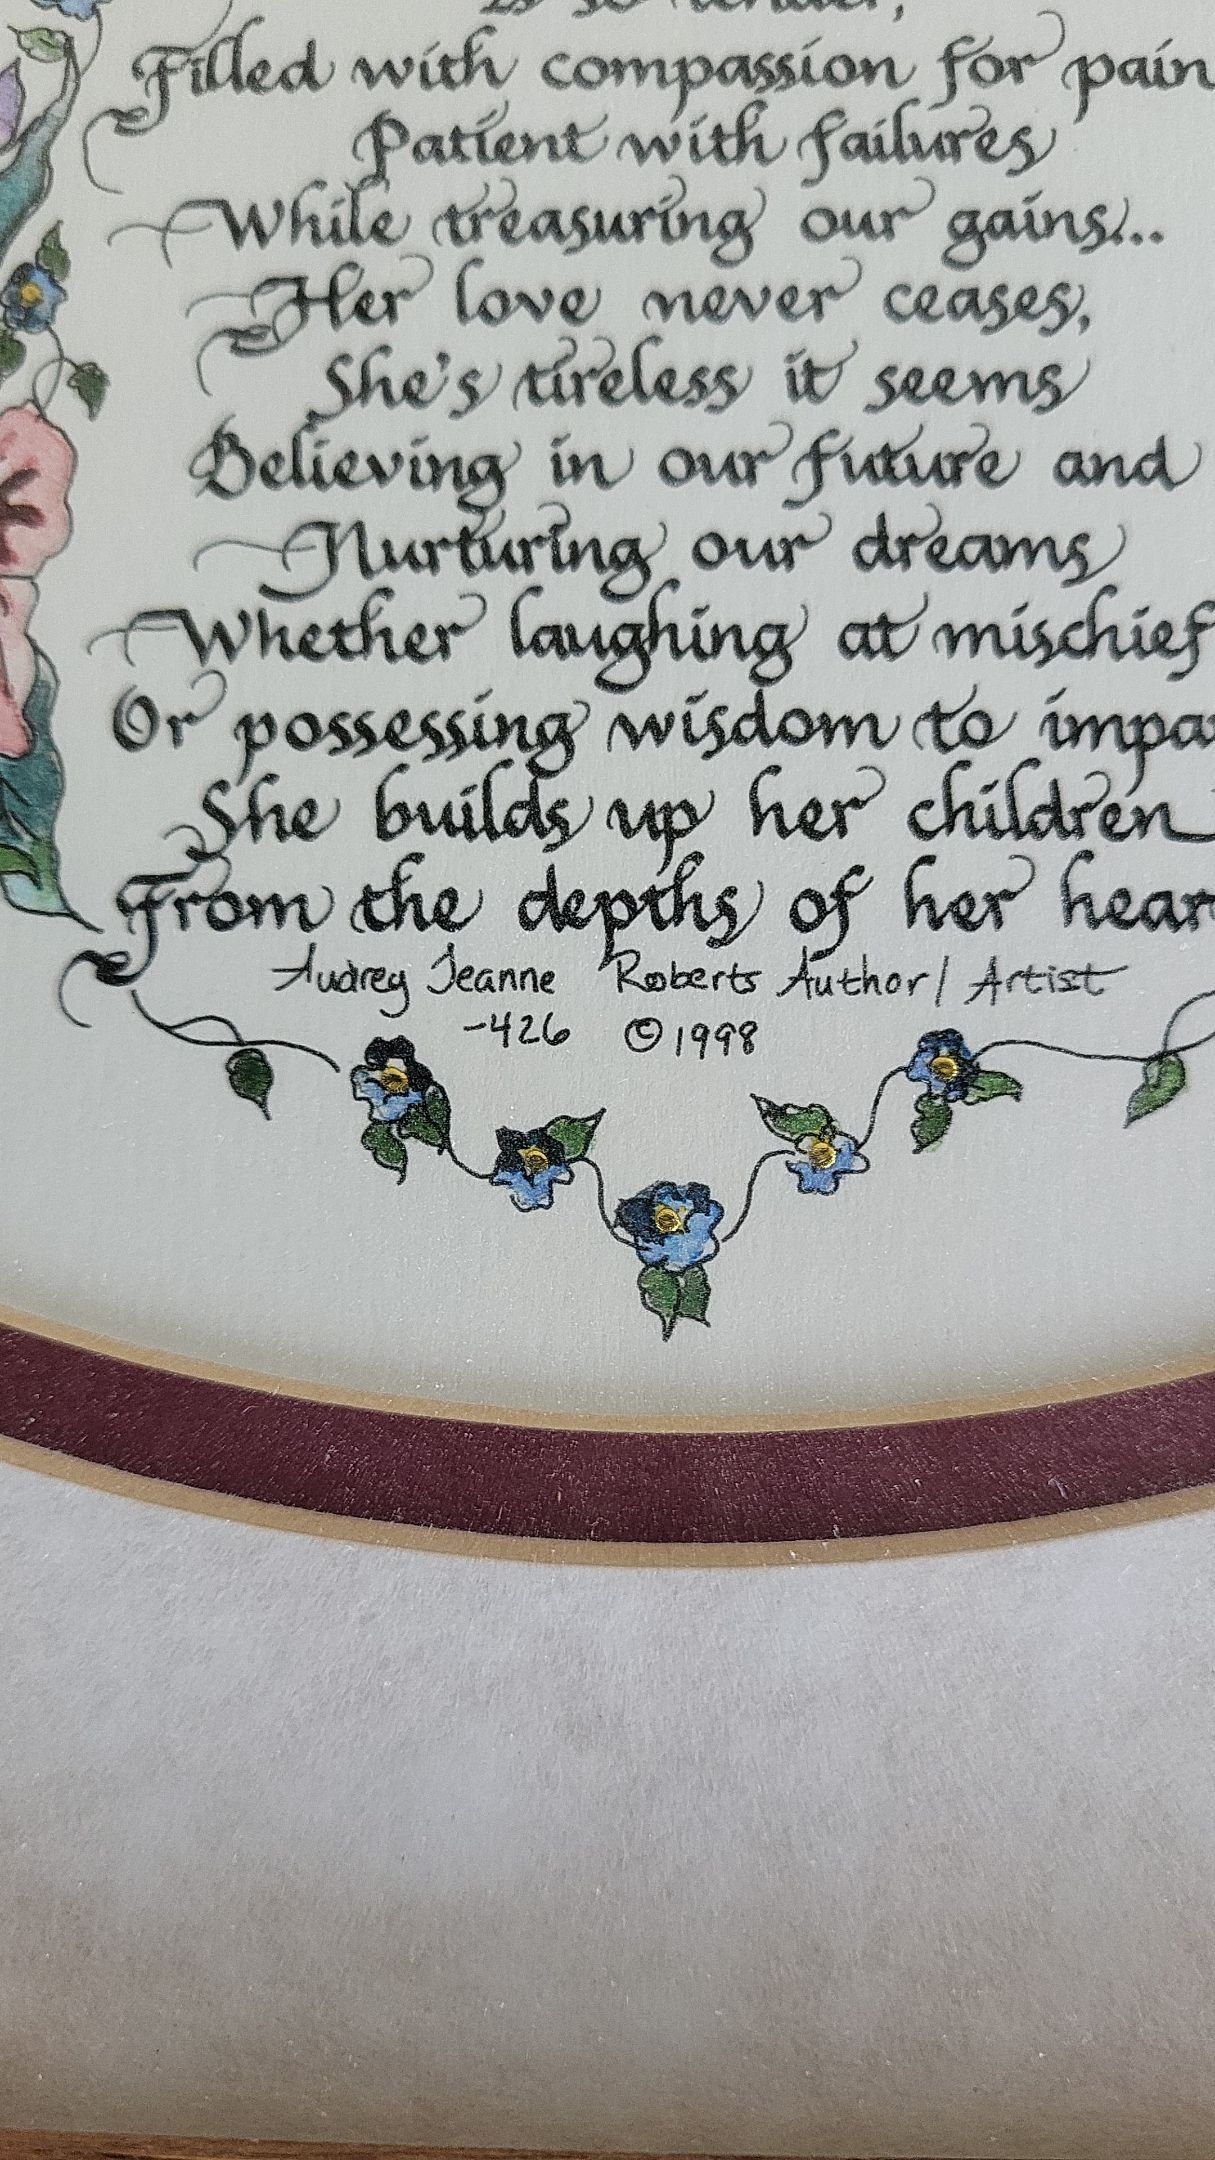 is so tender,
Filled with compassion for pain
Patient with failures
While treasuring our gains...
Her love never ceases,
She's tireless it seems
Believing in our future and
Nurturing our dreams
Whether laughing at mischief
Or possessing wisdom to impa
She builds up her children
From the depths of her hear
Audrey Jeanne Roberts Author/Artist
-426 ©1998